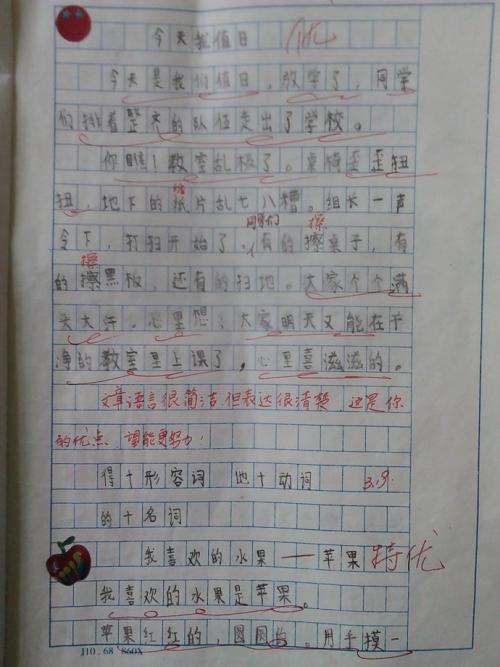 今天我值日 优
今天是我们值日，放学了，同学
们排着整齐的队伍走出了学校。
你瞧！教室乱极了。桌椅歪歪扭
扭，地下的纸片乱七八糟。组长一声
令下，打扫开始了。同学们有的擦桌子，有
的擦黑板，还有的扫地。大家个个满
头大汗。心里想：大家明天又能在干
净的教室里上课了，心里喜滋滋的。
文章语言很简洁，但表达很清楚，这是你
的优点，望能更努力！
得十形容词 地十动词 3.9.
的十名词
我喜欢的水果——苹果 特优
我喜欢的水果是苹果。
苹果红红的，圆圆的。用手摸一
J10.68 860X